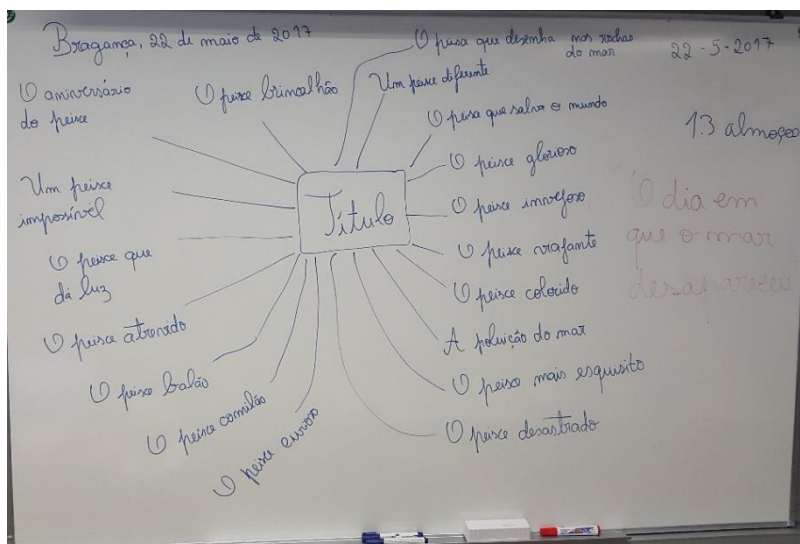 Bragança, 22 de maio de 2017
22-5-2017
O peixe que desenha nas rochas
do mar
O aniversário
do peixe
O peixe brincalhão
Um peixe diferente
O peixe que salva o mundo
13 almoços
O peixe glorioso
Um peixe
impossível
Título
O peixe invejoso
O dia em
que o mar
desapareceu
O peixe viajante
O peixe que
dá luz
O peixe colorido
O peixe atrevido
A poluição do mar
O peixe balão
O peixe mais esquisito
O peixe comilão
O peixe desastrado
O peixe curioso